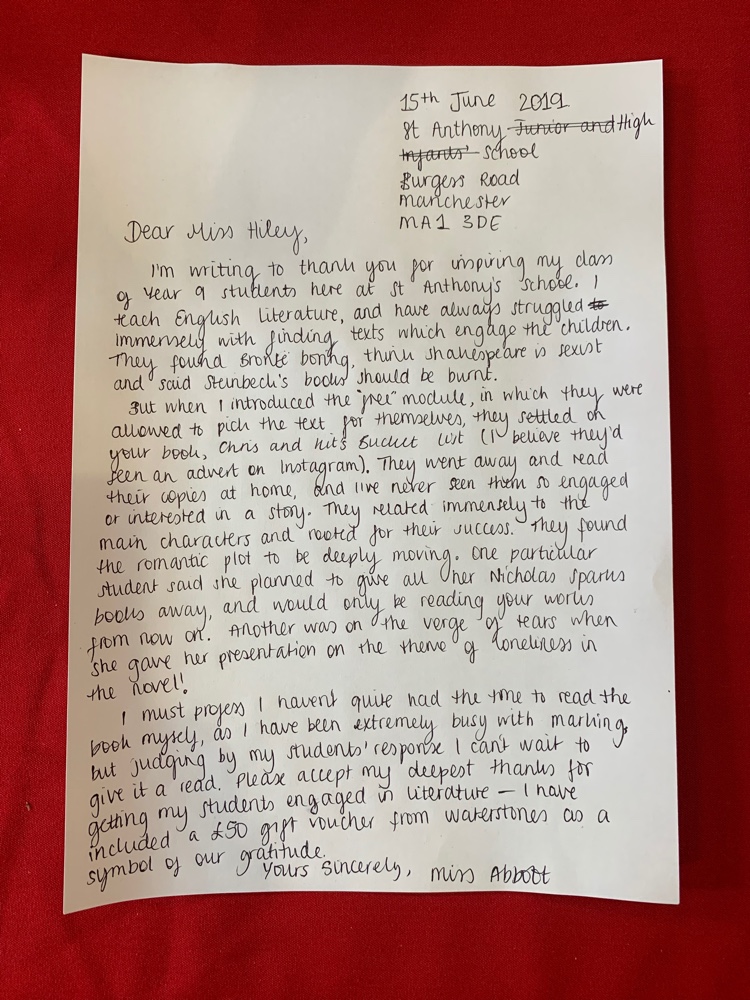 15th June 2019
St Anthony Junior and High
Infants' School
Burgess Road
Manchester
MA1 3DE
Dear Miss Hiley,
I'm writing to thank you for inspiring my class
of Year 9 students here at St Anthony's School. I
teach English Literature, and have always struggled to
immensely with finding texts which engage the children.
They found Brontë boring, think Shakespeare is sexist
and said Steinbeck's books should be burnt.
But when I introduced the "free" module, in which they were
allowed to pick the text for themselves, they settled on
your book, Chris and Kit's Bucket List (I believe they'd
seen an advert on Instagram). They went away and read
their copies at home, and I've never seen them so engaged
or interested in a story. They related immensely to the
main characters and rooted for their success. They found
the romantic plot to be deeply moving. One particular
student said she planned to give all her Nicholas Sparks
books away, and would only be reading your works
from now on. Another was on the verge of tears when
she gave her presentation on the theme of loneliness in
the novel!
I must profess I havent quite had the time to read the
book myself, as I have been extremely busy with marking,
but judging by my students' response I can't wait to
give it a read. Please accept my deepest thanks for
getting my students engaged in literature – I have
included a £50 gift voucher from Waterstones as a
symbol of our gratitude.
Yours Sincerely, Miss Abbott